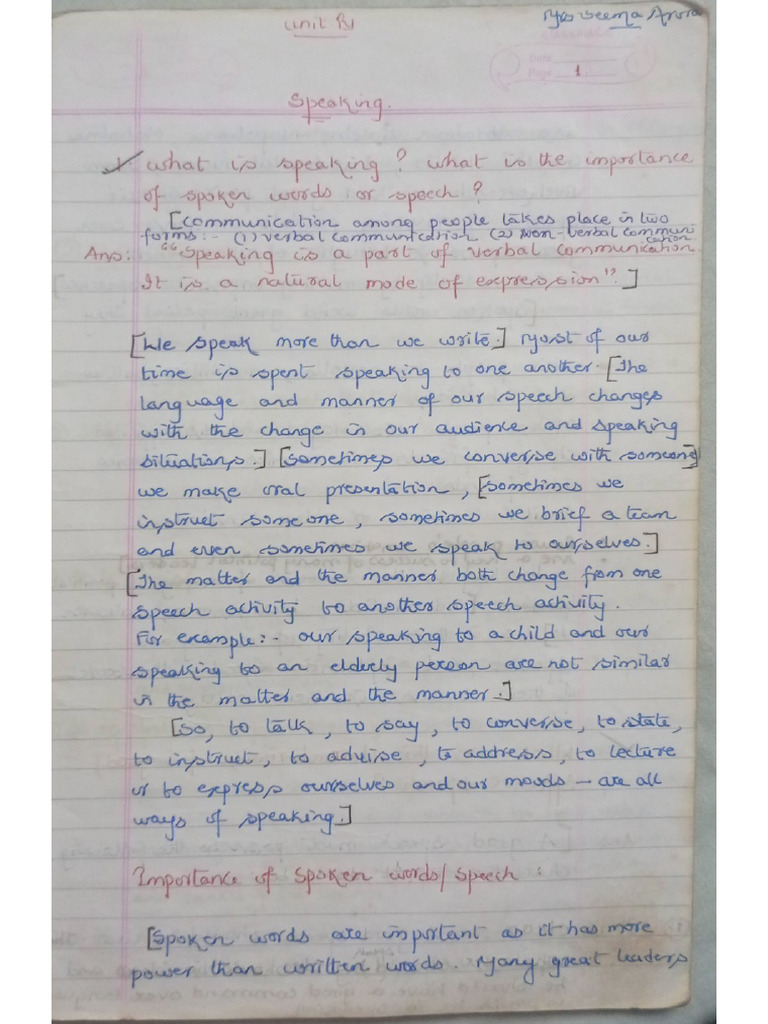 Unit IV
Mrs Seema Arora
Date
Page 1.
Speaking.
1 What is speaking? What is the importance
of spoken words or speech?
[Communication among people takes place in two
forms:- (1) Verbal communication (2) Non-Verbal communi
cation
Ans: "Speaking is a part of Verbal Communication
It is a natural mode of expression".]
[We speak more than we write.] Most of our
time is spent speaking to one another. [The
language and manner of our speech changes
with the change in our audience and speaking
situations.] [Sometimes we converse with someone]
we make oral presentation, [sometimes we
instruct someone, sometimes we brief a team
and even sometimes we speak to ourselves.]
[The matter and the manner both change from one
speech activity to another speech activity.
For example:- our speaking to a child and our
speaking to an elderly person are not similar
in the matter and the manner.]
[So, to talk, to say, to converse, to state,
to instruct, to advise, to address, to lecture
or to express ourselves and our moods – are all
ways of speaking.]
Importance of Spoken words/speech:
[Spoken words are important as it has more
power than written words. Many great leaders